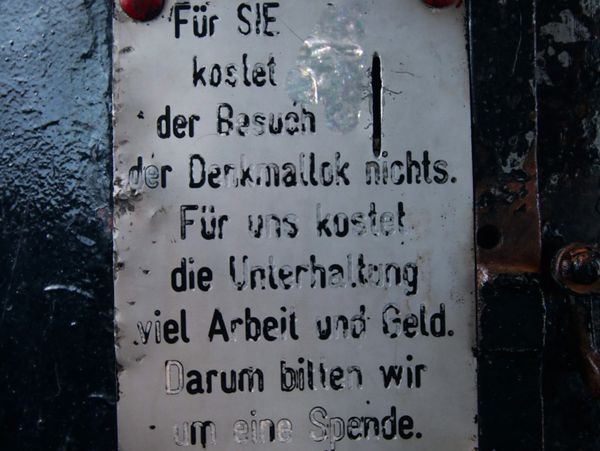 Für SIE
kostet
der Besuch
der Denkmallok nichts.
Für uns kostet
die Unterhaltung
viel Arbeit und Geld.
Darum bitten wir
um eine Spende.